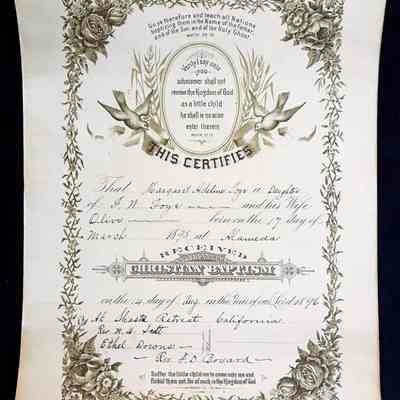 Go ye therefore and teach all Nations
baptizing them in the Name of the Father
and of the Son and of the Holy Ghost.
Verily I say unto
you
whosoever shall not
receive the Kingdom of God
as a little child
he shall in no wise
enter therein
THIS CERTIFIES
That Margaret Adeline a Daughter
of and his Wife
Olive born on the 17 day of
March 1895 at Alameda
RECEIVED
CHRISTIAN BAPTISM
on the day of Aug. in the Year of our Lord 1896
At Shasta Retreat California
Rev.
Ethel Downs
Rev.
Suffer the little children to come unto me and
forbid them not, for of such is the Kingdom of God